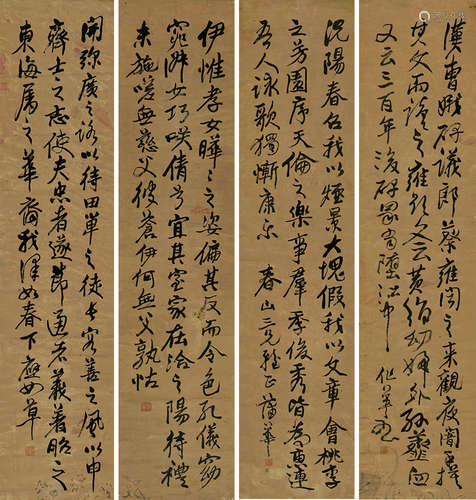 漢曹娥碑議郎蔡雍聞之來觀夜闇手摸
其文而讀之雍題文云黃絹幼婦外孫齏臼
又云三百年後碑冢當墮江中
況陽春召我以煙景大塊假我以文章會桃李
之芳園序天倫之樂事羣季俊秀皆為惠連
吾人詠歌獨慚康樂 春山三兄雅正 蒲華
伊惟孝女曄曄之姿偏其反而令色孔儀窈
窕淑女巧咲倩兮宜其室家在洽之陽待禮
未施嗟無慈父彼蒼伊何無父孰怙
開弥廣之路以待田單之徒長容善之風以申
齊士之志使夫忠者遂節通者義著昭之
東海屬之華裔我澤如春下應如草